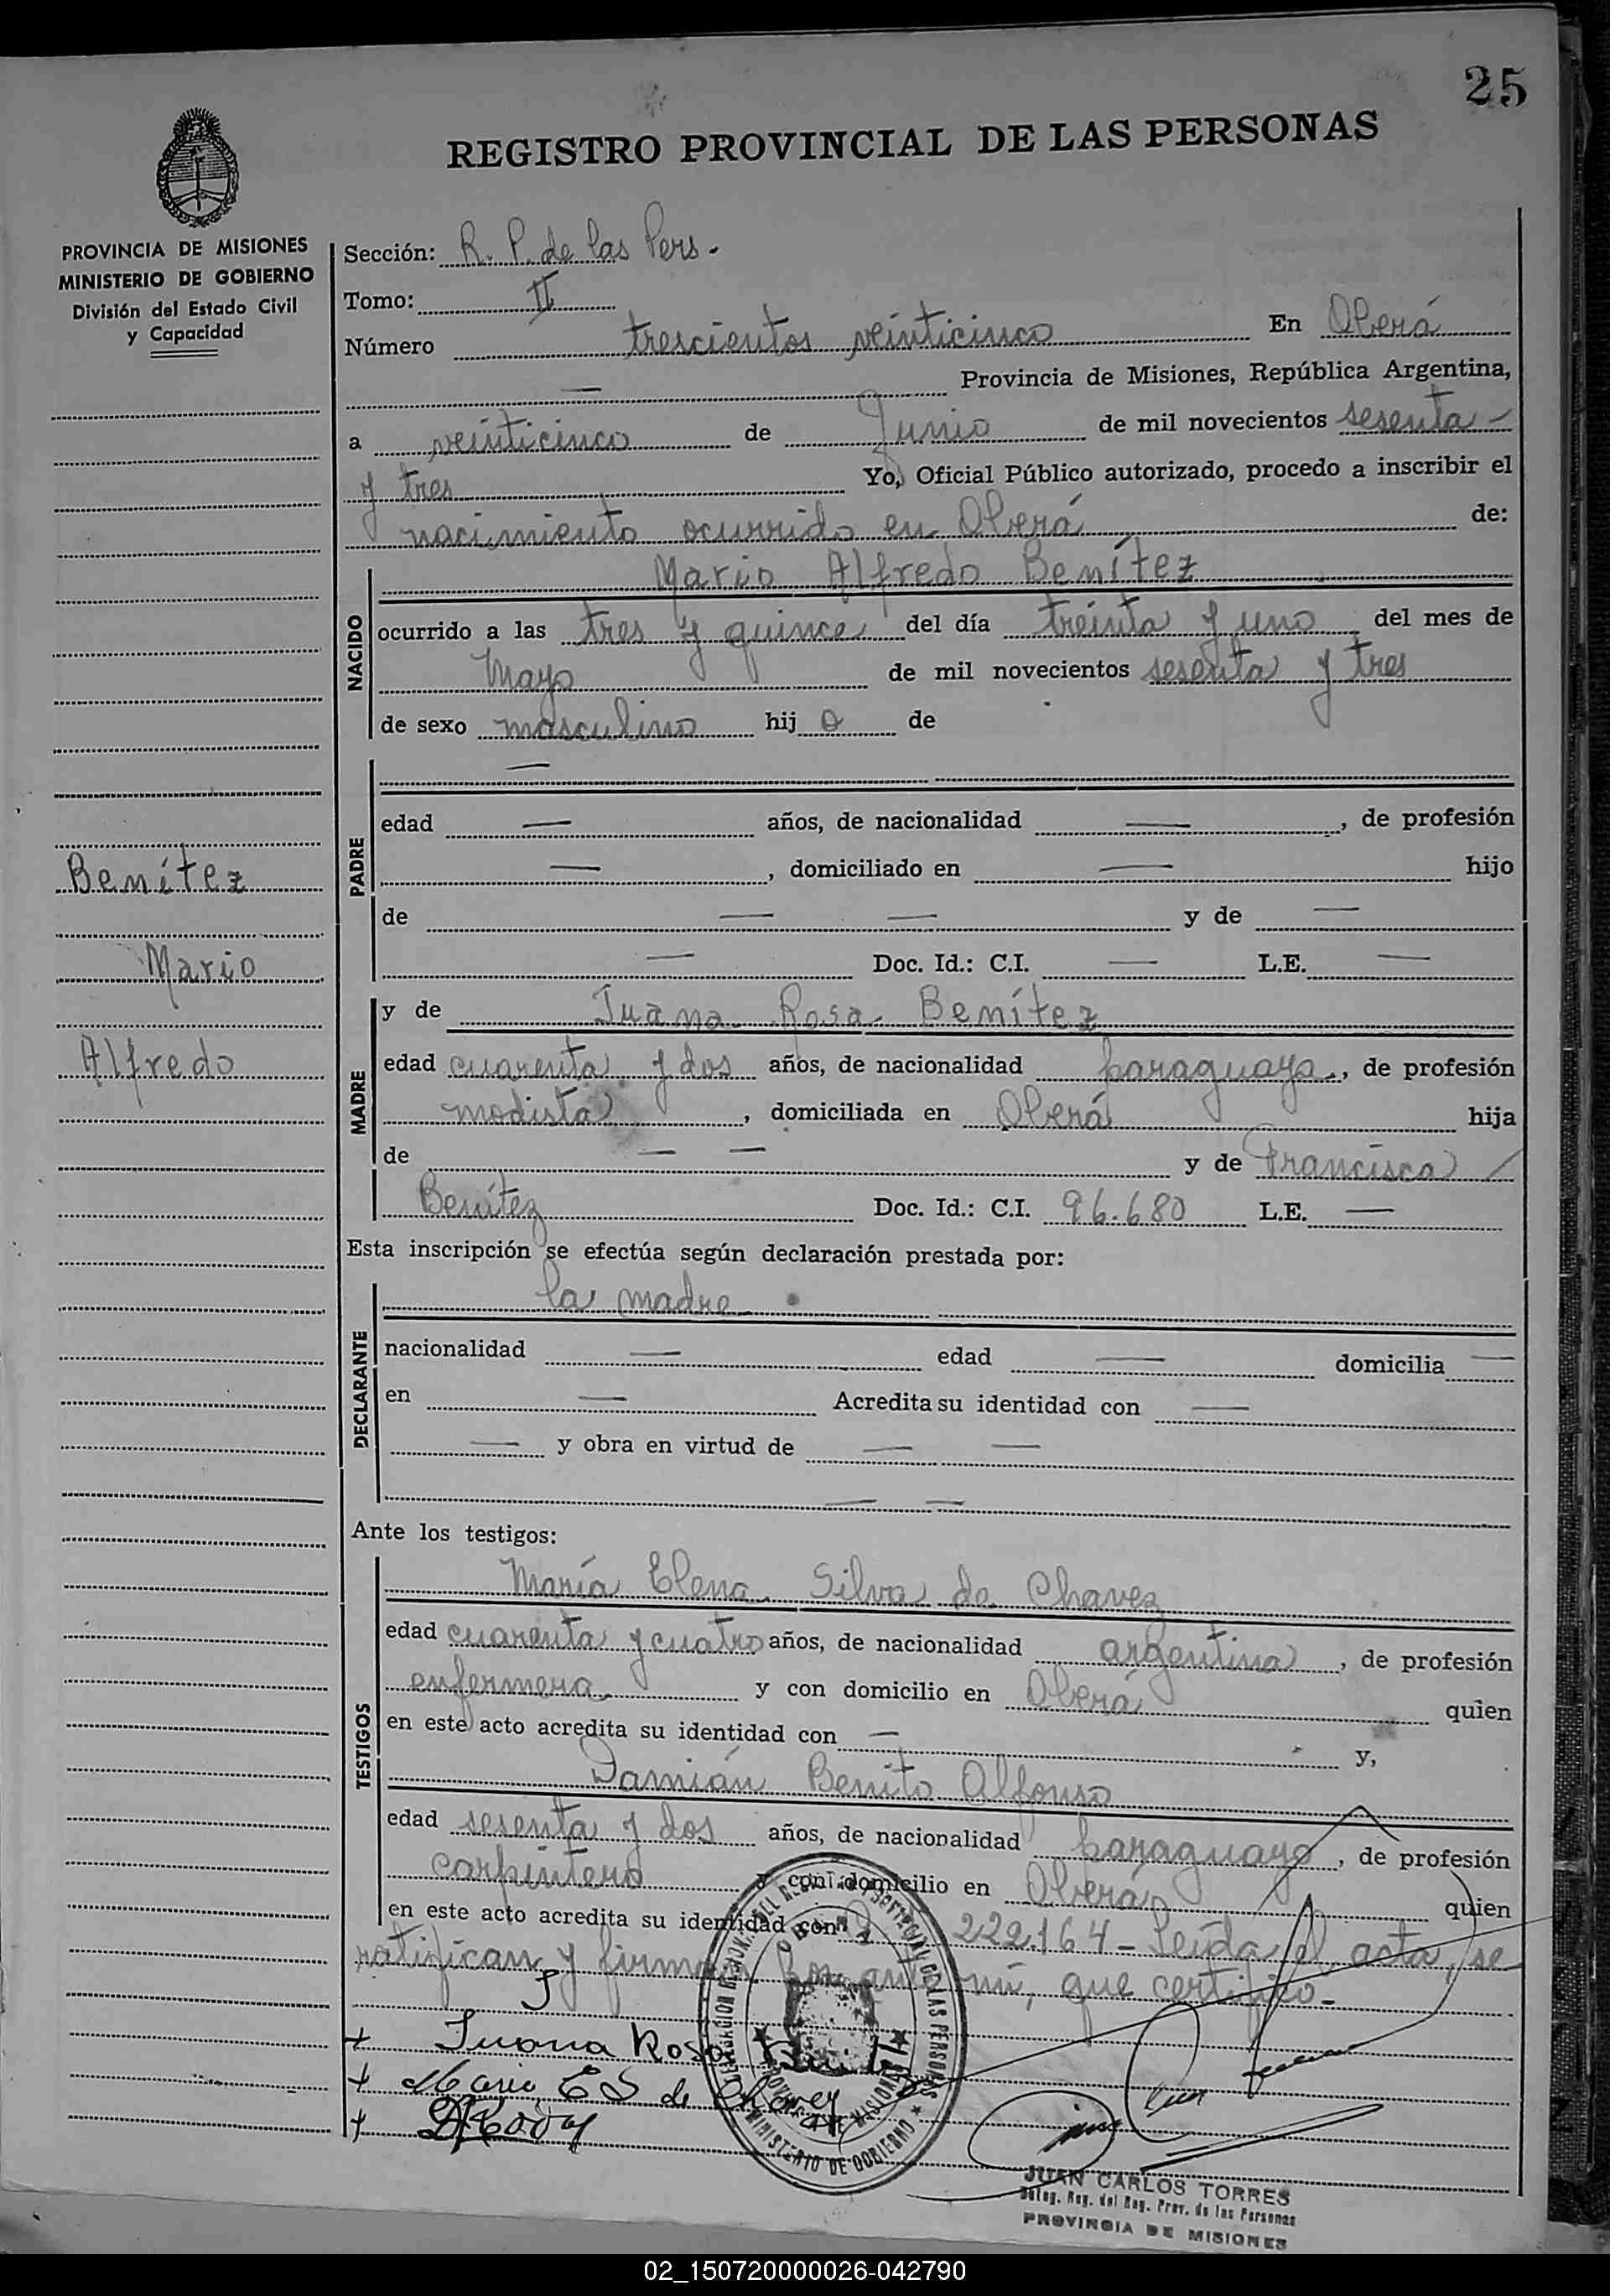 25
REGISTRO PROVINCIAL DE LAS PERSONAS
PROVINCIA DE MISIONES
MINISTERIO DE GOBIERNO
División del Estado Civil
y Capacidad
Sección: R. P. de las Pers.
Tomo: II
Número trescientos veinticinco En Oberá
— Provincia de Misiones, República Argentina,
a veinticinco de Junio de mil novecientos sesenta —
y tres Yo, Oficial Público autorizado, procedo a inscribir el
nacimiento ocurrido en Oberá de:
NACIDO
Mario Alfredo Benítez
ocurrido a las tres y quince del día treinta y uno del mes de
Mayo de mil novecientos sesenta y tres
de sexo masculino hij o de
PADRE
—
edad — años, de nacionalidad —, de profesión
—, domiciliado en — hijo
de — — y de —
— Doc. Id.: C.I. — L.E. —
Benítez
Mario
Alfredo
MADRE
y de Juana Rosa Benítez
edad cuarenta y dos años, de nacionalidad paraguaya, de profesión
modista, domiciliada en Oberá hija
de — — y de Francisca
Benítez Doc. Id.: C.I. 96.680 L.E. —
Esta inscripción se efectúa según declaración prestada por:
DECLARANTE
la madre
nacionalidad — edad — domicilia —
en — Acredita su identidad con —
— y obra en virtud de — —
— —
Ante los testigos:
TESTIGOS
María Elena Silva de Chavez
edad cuarenta y cuatro años, de nacionalidad argentina, de profesión
enfermera y con domicilio en Oberá quien
en este acto acredita su identidad con — y,
Damián Benito Alfonso
edad sesenta y dos años, de nacionalidad paraguayo, de profesión
carpintero y con domicilio en Oberá quien
en este acto acredita su identidad con 222.164 - Leída el acta, se
ratifican y firman por ante mí, que certifico.-
+ Juana Rosa
+ Maria E S de Chavez
+
OBERA
PROVINCIA DE MISIONES
MINISTERIO DE GOBIERNO
JUAN CARLOS TORRES
Deleg. Reg. del Reg. Prov. de las Personas
PROVINCIA DE MISIONES
02_150720000026-042790